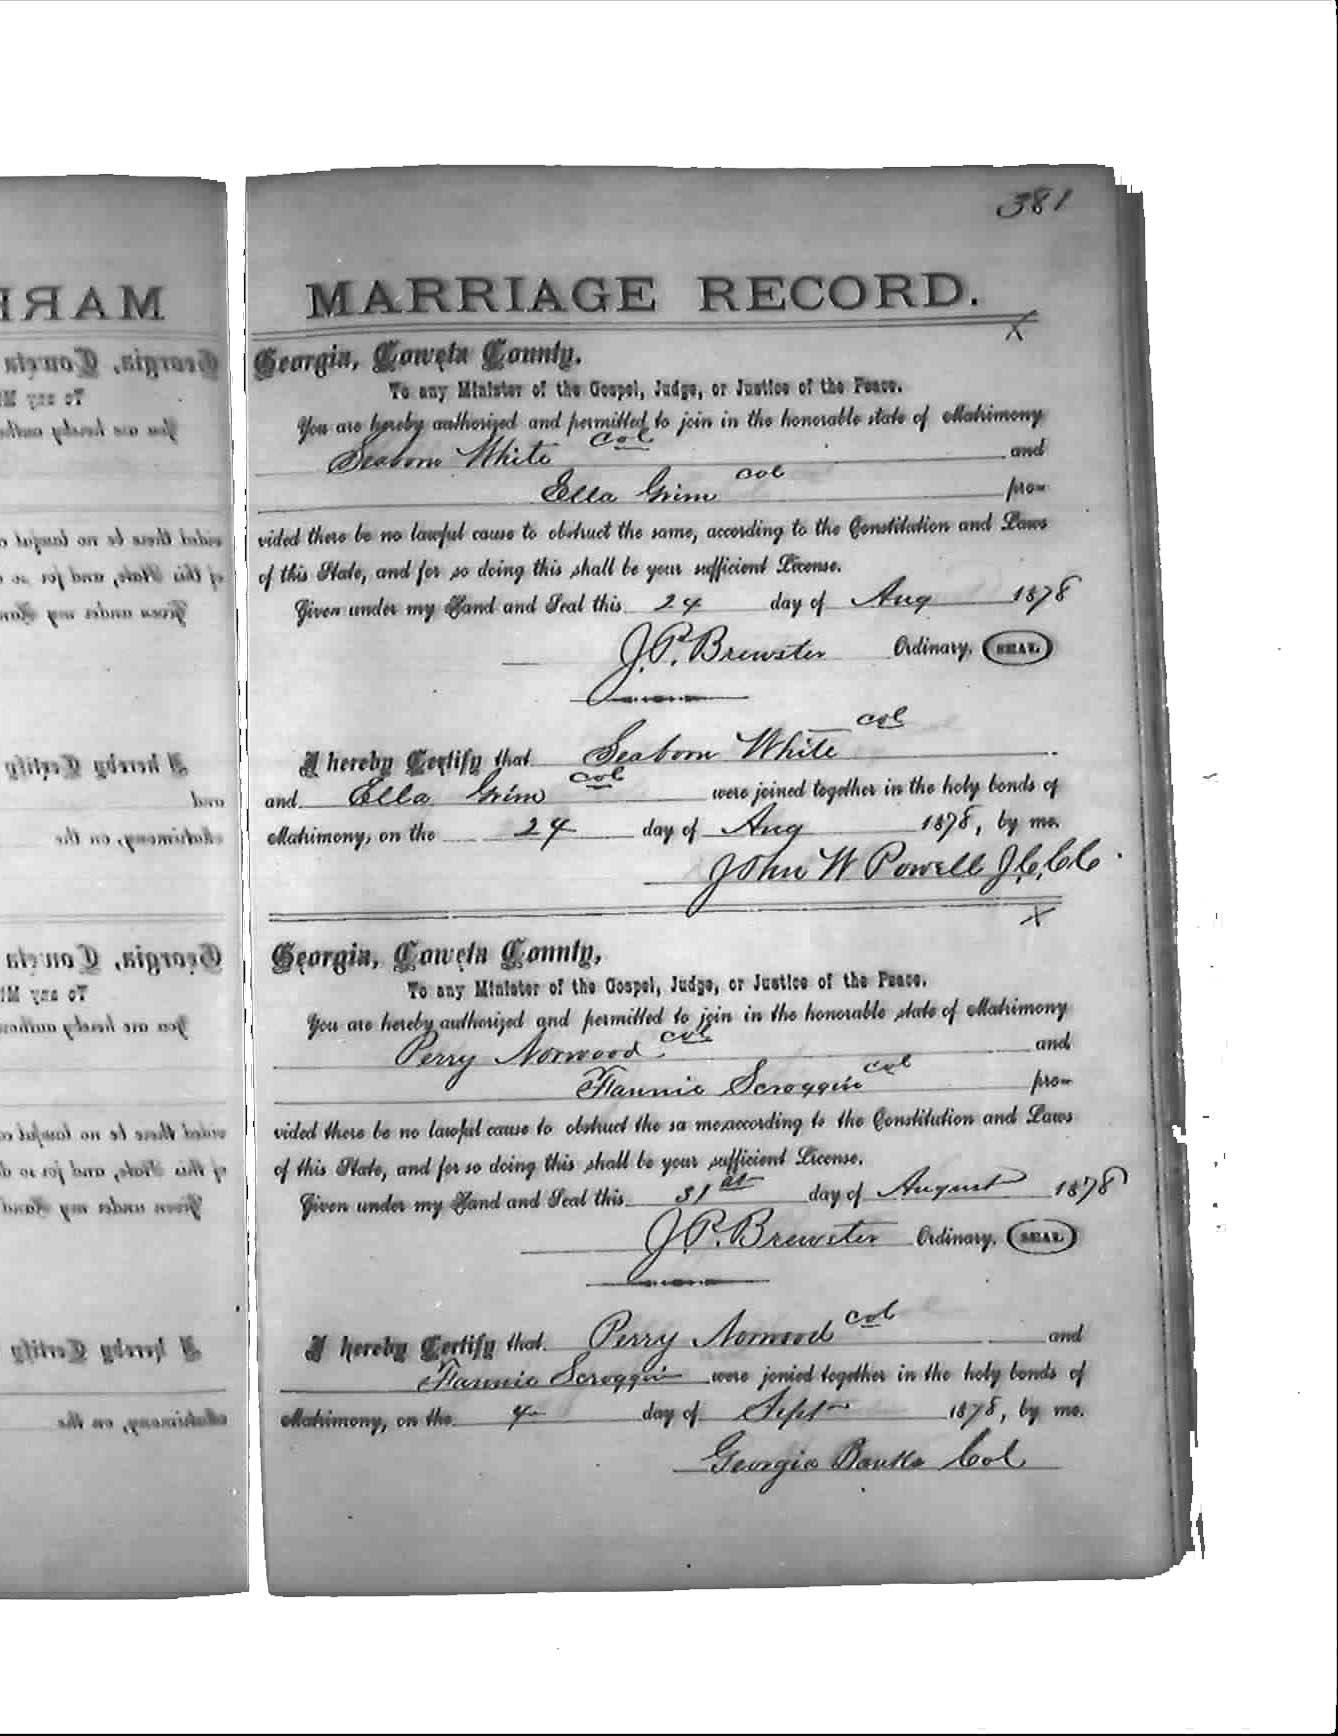 381
MARRIAGE RECORD.
X
Georgia, Coweta County.
To any Minister of the Gospel, Judge, or Justice of the Peace.
You are hereby authorized and permitted to join in the honorable state of Matrimony
Seaborn White col and
Ella Grim col pro-
vided there be no lawful cause to obstruct the same, according to the Constitution and Laws
of this State, and for so doing this shall be your sufficient License.
Given under my Hand and Seal this 24 day of Aug 1878
J. P. Brewster Ordinary, SEAL
I hereby Certify that Seaborn White col
and Ella Grim col were joined together in the holy bonds of
Matrimony, on the 24 day of Aug 1878, by me.
John W Powell J.C.C.C.
X
Georgia, Coweta County,
To any Minister of the Gospel, Judge, or Justice of the Peace.
You are hereby authorized and permitted to join in the honorable state of Matrimony
Perry Norwood col and
Fannie Scroggin col pro-
vided there be no lawful cause to obstruct the sa me,according to the Constitution and Laws
of this State, and for so doing this shall be your sufficient License.
Given under my Hand and Seal this 31st day of August 1878
J. P. Brewster Ordinary, SEAL
I hereby Certify that Perry Norwood col and
Fannie Scroggin were jonied together in the holy bonds of
Matrimony, on the 4 day of Sept 1878, by me.
Georgie Banks Col